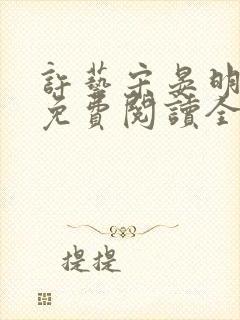 許藝宋晏明
免費閱讀全
提提